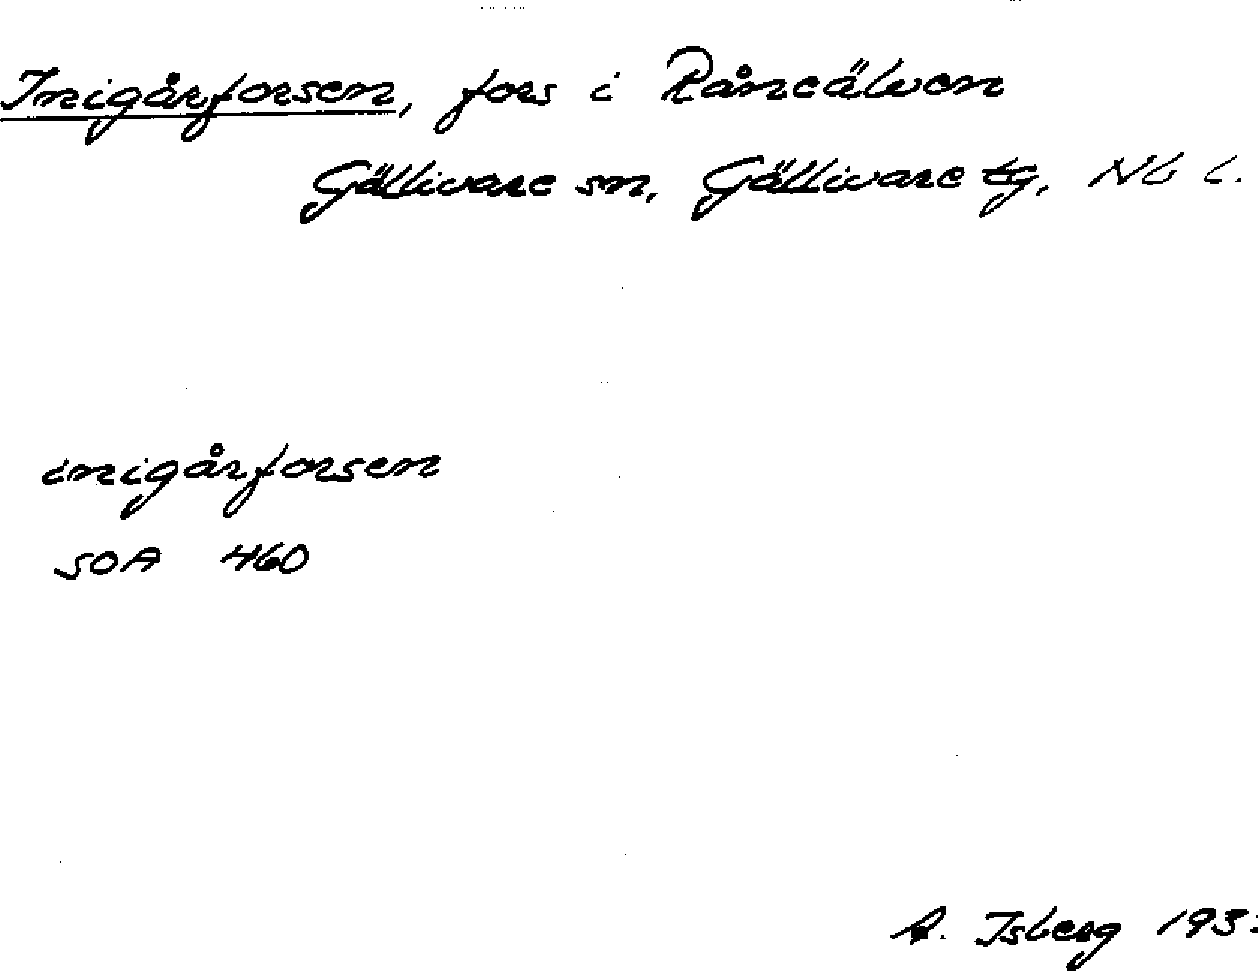 Inigårforsen, fors i Råneälven
Gällivare sn, Gällivare tg, Nb l.
inigårforsen
SOA 460
A. Isberg